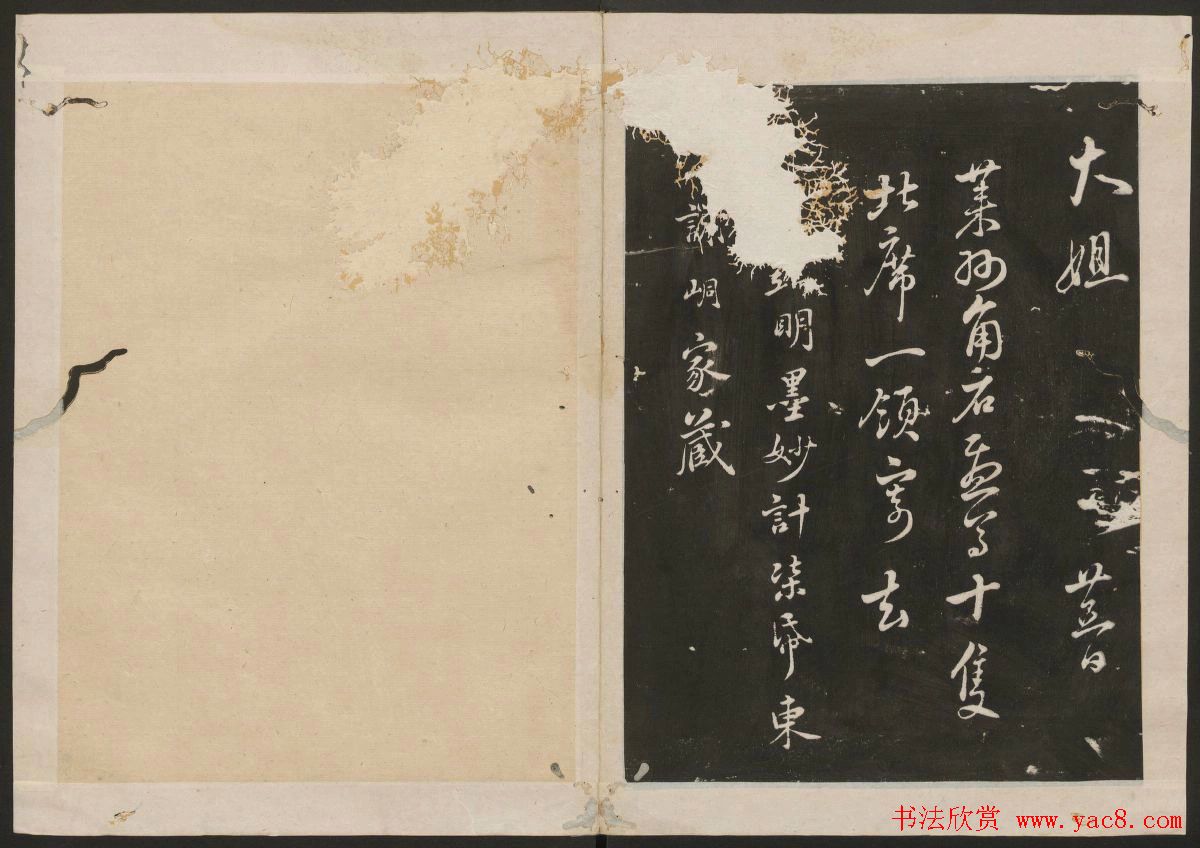 大姐 廿五日
角石十隻
北席一領寄去
明墨妙計柒帋東
謝峒家藏
书法欣赏 www.yac8.com